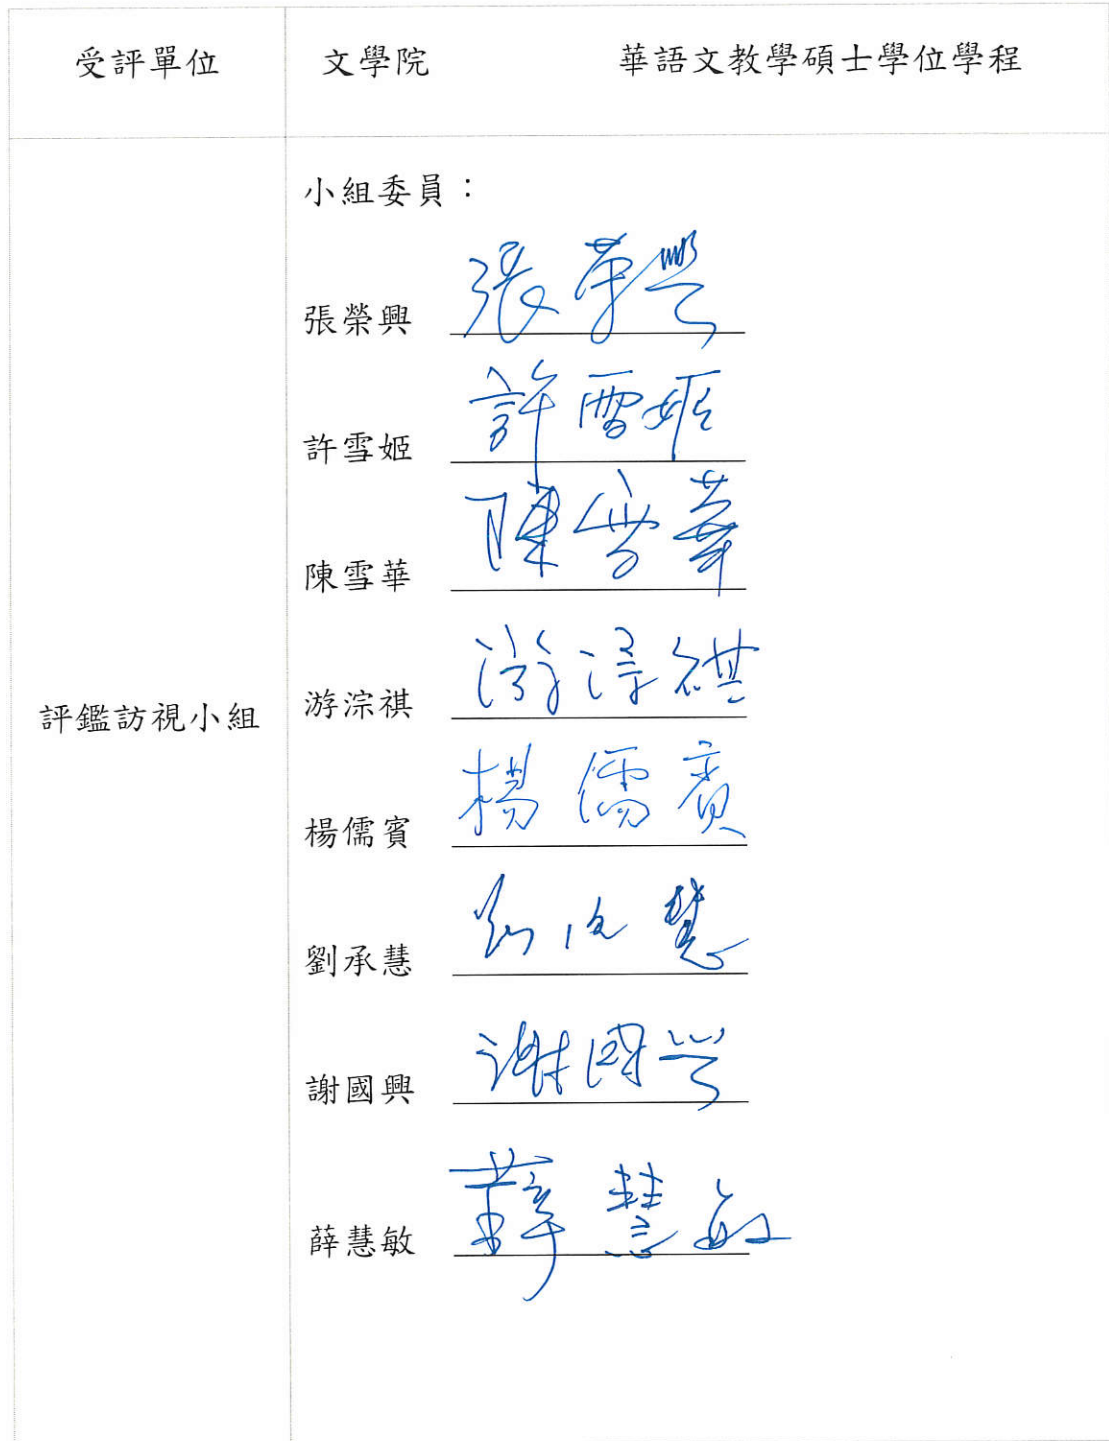 受評單位 文學院 華語文教學碩士學位學程
小組委員：
張榮興 張榮興
許雪姬 許雪姬
陳雪華 陳雪華
評鑑訪視小組 游淙祺 游淙祺
楊儒賓 楊儒賓
劉承慧 劉承慧
謝國興 謝國興
薛慧敏 薛慧敏